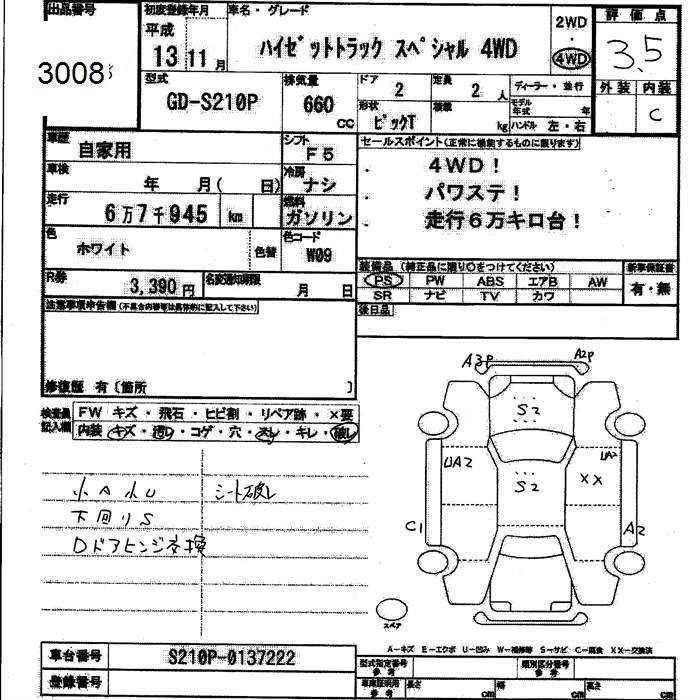 出品番号
3008
初度登録年月
平成
13 11月
車名・グレード
ハイゼットトラック スペシャル 4WD
2WD
・
4WD
評価点
3.5
外装 内装
C
型式
GD-S210P
排気量
660
CC
ドア
2
定員
2 人
ディーラー・並行
形状
ピックT
積載
kg
モデル年式 年
ハンドル 左・右
車歴
自家用
シフト
F5
セールスポイント(正常に機能するものに限ります)
車検
年 月( 日)
冷房
ナシ
・ 4WD!
・ パワステ!
・ 走行6万キロ台!
走行
6万7千945 km
燃料
ガソリン
色
ホワイト
色替
色コード
W09
装備品 (純正品に限り○をつけてください)
新車保証書
PS PW ABS エアB AW
SR ナビ TV カワ
有・無
R券
3,390円
名変通知期限
月 日
後日品
注意事項申告欄(不具合内容等は具体的に記入して下さい)
修復歴 有〔箇所 〕
検査員記入欄
FW キズ・飛石・ヒビ割・リペア跡・×要
内装 キズ・汚レ・コゲ・穴・スレ・キレ・破レ
小ヘ小U
シート破レ
下回りS
Dドアヒンジ交換
A3P
A2P
S2
UA2
UA2
XX
S2
C1
A2
スペア
A-キズ E-エクボ U-凹み W-補修跡 S-サビ C-腐食 XX-交換済
車台番号
S210P-0137222
登録番号
型式指定番号
参考
類別区分番号
参考
車庫証明用
参考
長さ cm
幅 cm
高さ cm